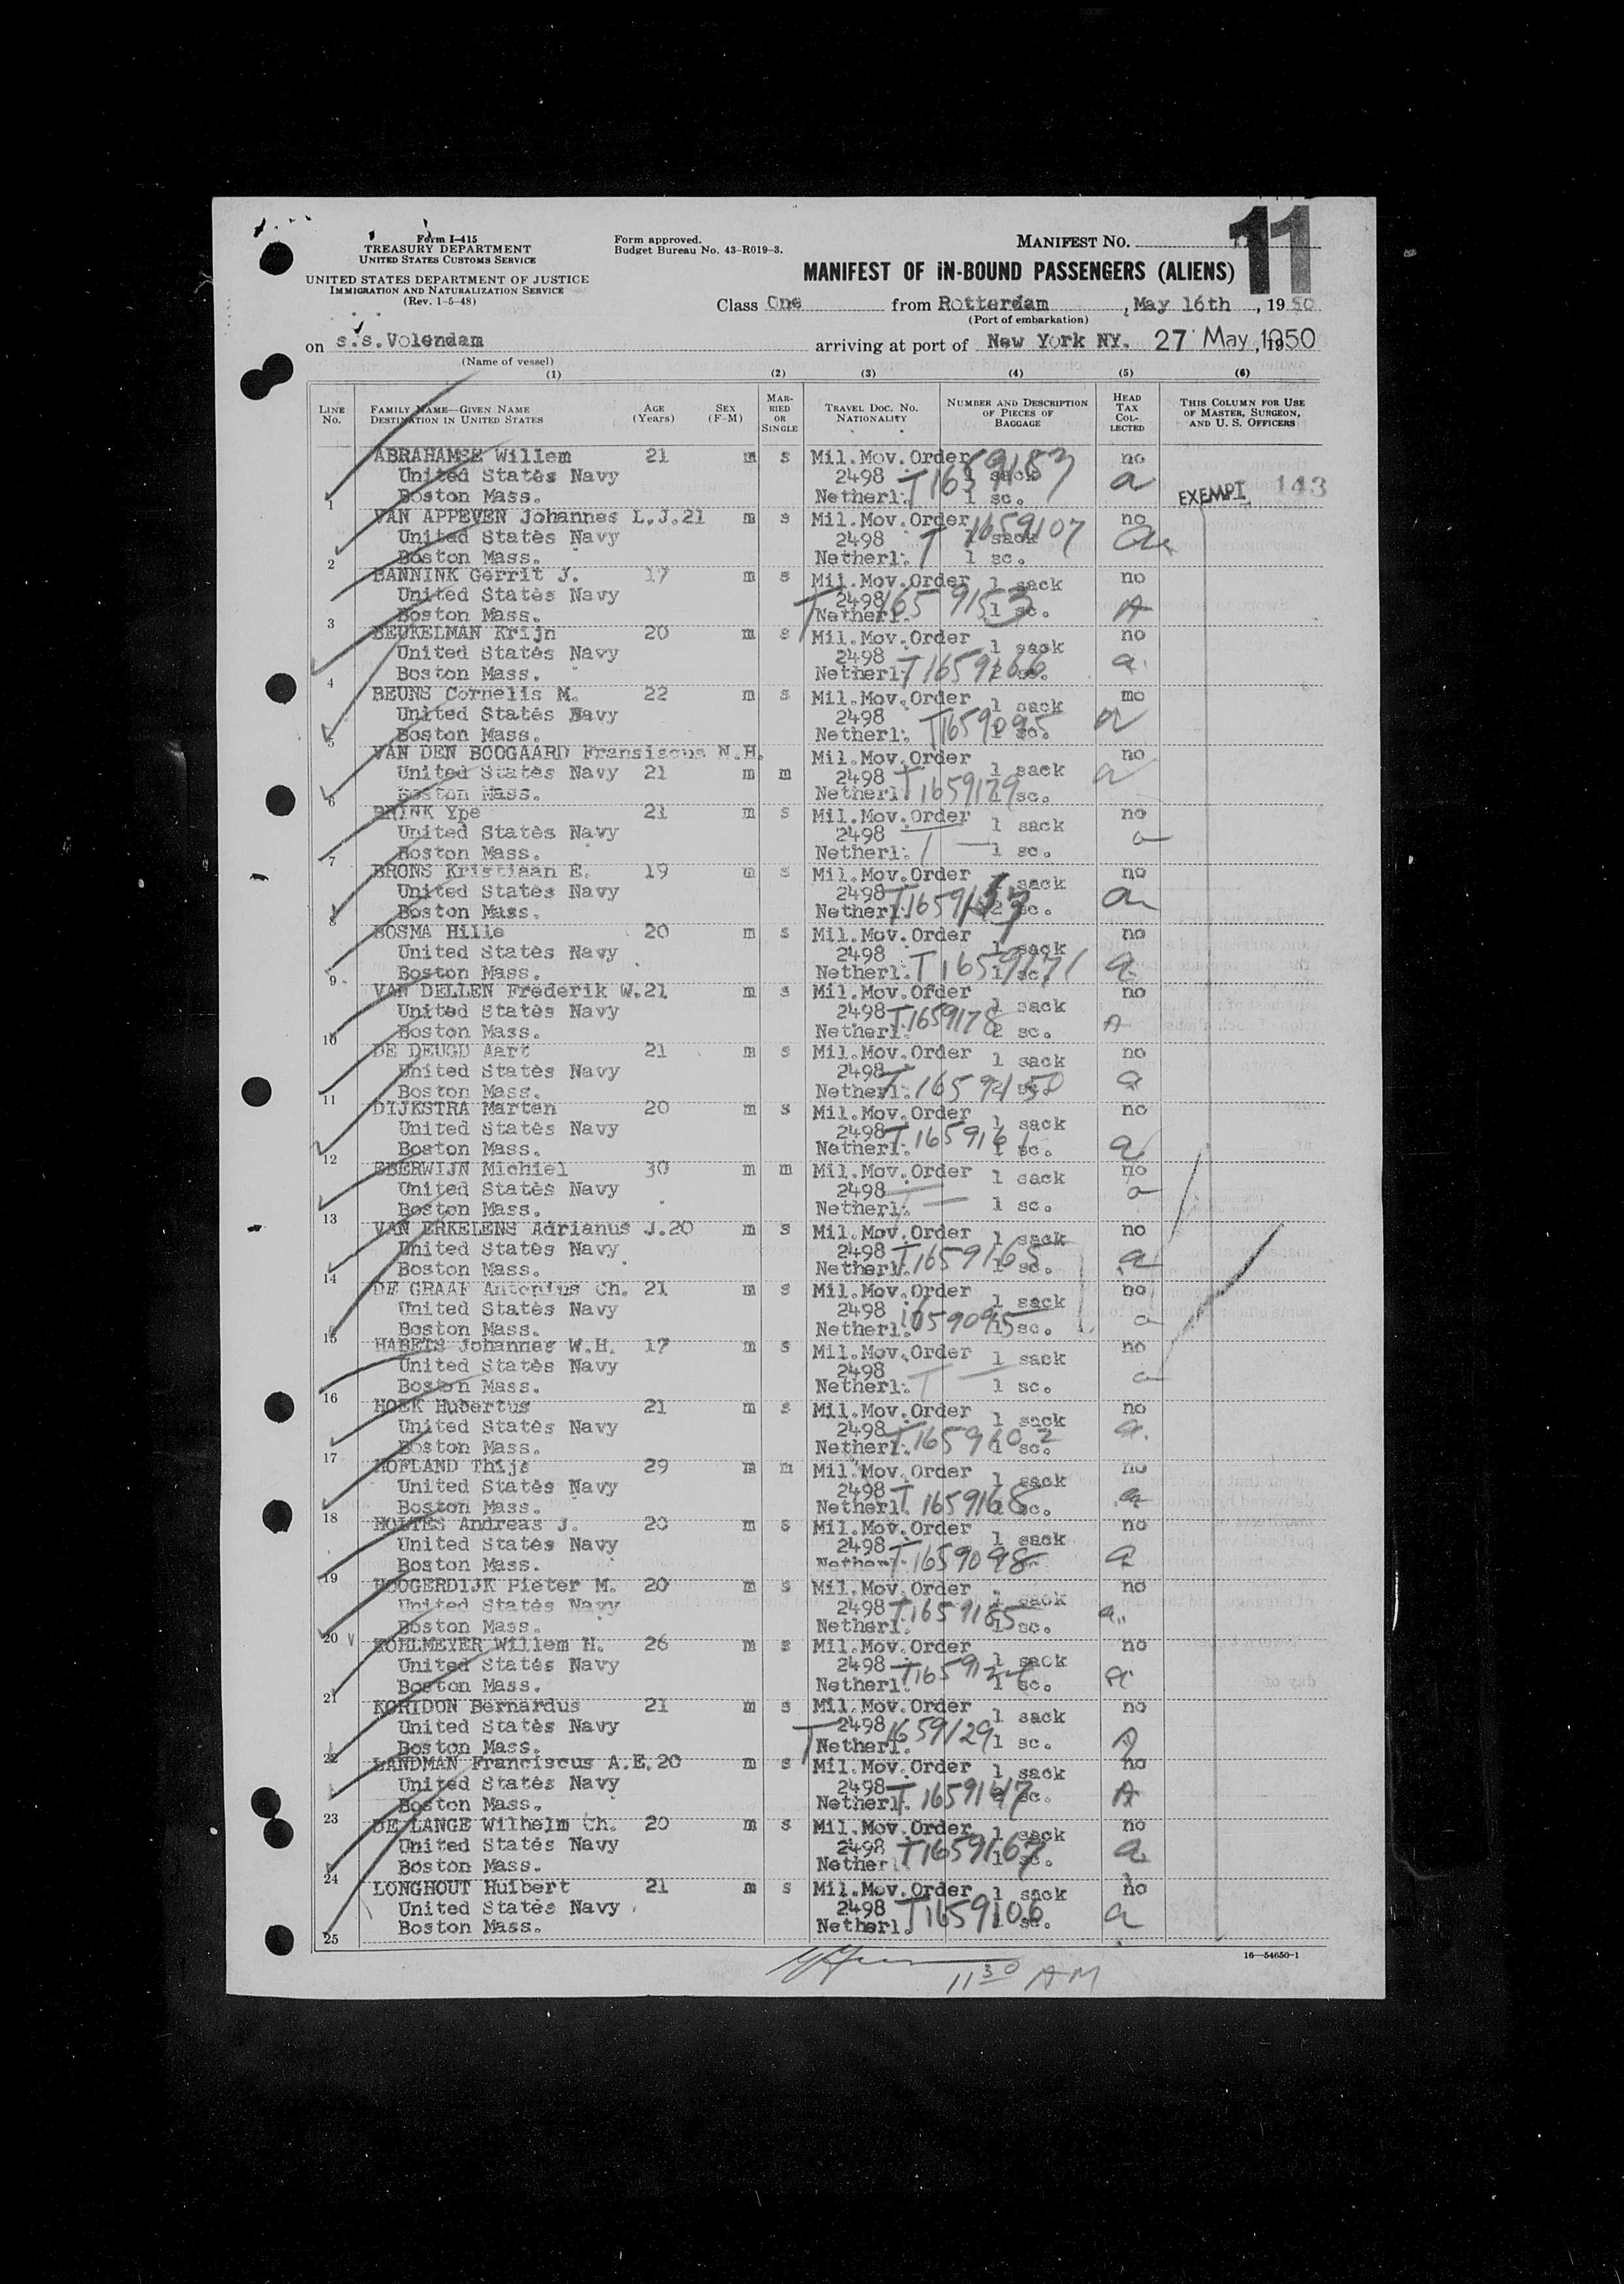 Form I-415
TREASURY DEPARTMENT
UNITED STATES CUSTOMS SERVICE
UNITED STATES DEPARTMENT OF JUSTICE
IMMIGRATION AND NATURALIZATION SERVICE
(Rev. 1-5-48)
Form approved.
Budget Bureau No. 43-R019-3.
MANIFEST NO. 11
MANIFEST OF IN-BOUND PASSENGERS (ALIENS)
Class One from Rotterdam, May 16th, 1950
(Port of embarkation)
on s.s.Volendam arriving at port of New York NY. 27 May, 1950
(Name of vessel)
(1) (2) (3) (4) (5) (6)
LINE No. FAMILY NAME—GIVEN NAME DESTINATION IN UNITED STATES AGE (Years) SEX (F-M) MARRIED OR SINGLE TRAVEL DOC. NO. NATIONALITY NUMBER AND DESCRIPTION OF PIECES OF BAGGAGE HEAD TAX COLLECTED THIS COLUMN FOR USE OF MASTER, SURGEON, AND U. S. OFFICERS
ABRAHAMSE Willem 21 m s Mil.Mov.Order no
United States Navy 2498 T1659183 1 sack a EXEMPT 143
1 Boston Mass. Netherl. 1 sc.
VAN APPEVEN Johannes L.J.21 m s Mil.Mov.Order no
United States Navy 2498 T 1659107 1 sack
2 Boston Mass. Netherl. 1 sc.
BANNINK Gerrit J. 17 m s Mil.Mov.Order 1 sack no
United States Navy 2498 T 1659153 A
3 Boston Mass. Netherl. 1 sc.
BEUKELMAN Krijn 20 m s Mil.Mov.Order 1 sack no
United States Navy 2498 a
4 Boston Mass. Netherl. T1659166 sc.
BEUNS Cornelis M. 22 m s Mil.Mov.Order 1 sack mo
United States Navy 2498 T1659095 a
5 Boston Mass. Netherl. sc.
VAN DEN BOOGAARD Fransiscus N.H. Mil.Mov.Order no
United States Navy 21 m m 2498 1 sack a
6 Boston Mass. Netherl. T1659179 sc.
BRINK Ype 21 m s Mil.Mov.Order 1 sack no
United States Navy 2498 T — a
7 Boston Mass. Netherl. 1 sc.
BRONS Kristiaan E. 19 m s Mil.Mov.Order 1 sack no
United States Navy 2498 a
8 Boston Mass. Netherl. 2 sc.
BOSMA Hille 20 m s Mil.Mov.Order no
United States Navy 2498 1 sack
9 Boston Mass. Netherl. T1659171 1 sc. a
VAN DELLEN Frederik W.21 m s Mil.Mov.Order no
United States Navy 2498 T1659178 1 sack
10 Boston Mass. Netherl. 2 sc. A
DE DEUGD Aart 21 m s Mil.Mov.Order 1 sack no
United States Navy 2498 a
11 Boston Mass. Netherl.
DIJKSTRA Marten 20 m s Mil.Mov.Order no
United States Navy 2498 1 sack
12 Boston Mass. Netherl. 1 sc. a
EBERWIJN Michiel 30 m m Mil.Mov.Order 1 sack no
United States Navy 2498 T — a
13 Boston Mass. Netherl. 1 sc.
VAN ERKELENS Adrianus J.20 m s Mil.Mov.Order 1 sack no
United States Navy 2498 T1659165 a
14 Boston Mass. Netherl. sc.
DE GRAAF Antonius Ch. 21 m s Mil.Mov.Order 1 sack no
United States Navy 2498 a
15 Boston Mass. Netherl. 1659095 sc.
HABETS Johannes W.H. 17 m s Mil.Mov.Order 1 sack no
United States Navy 2498 T — a
16 Boston Mass. Netherl. 1 sc.
HOEK Hubertus 21 m s Mil.Mov.Order 1 sack no
United States Navy 2498 a.
17 Boston Mass. Netherl. T1659102 sc.
HOFLAND Thijs 29 m m Mil.Mov.Order 1 sack no
United States Navy 2498 a
18 Boston Mass. Netherl. T 1659168 sc.
HOLTES Andreas J. 20 m s Mil.Mov.Order no
United States Navy 2498 1 sack
19 Boston Mass. Netherl. T1659098 a
HOOGERDIJK Pieter M. 20 m s Mil.Mov.Order no
United States Navy 2498 T1659185 1 sack a
20 Boston Mass. Netherl. sc.
KOHLMEYER Willem H. 26 m s Mil.Mov.Order no
United States Navy 2498 1 sack
21 Boston Mass. Netherl. 1 sc. a
KORIDON Bernardus 21 m s Mil.Mov.Order 1 sack no
United States Navy 2498 T 1659129
22 Boston Mass. Netherl. 1 sc. A
LANDMAN Franciscus A.E.20 m s Mil.Mov.Order 1 sack no
United States Navy 2498 A
23 Boston Mass. Netherl. T 1659147 sc.
DE LANGE Wilhelm Ch. 20 m s Mil.Mov.Order 1 sack no
United States Navy 2498 T1659167 a
24 Boston Mass. Netherl 1 sc.
LONGHOUT Huibert 21 m s Mil.Mov.Order 1 sack no
United States Navy 2498 T1659106 a
25 Boston Mass. Netherl. sc.
16—54650-1
11 30 AM